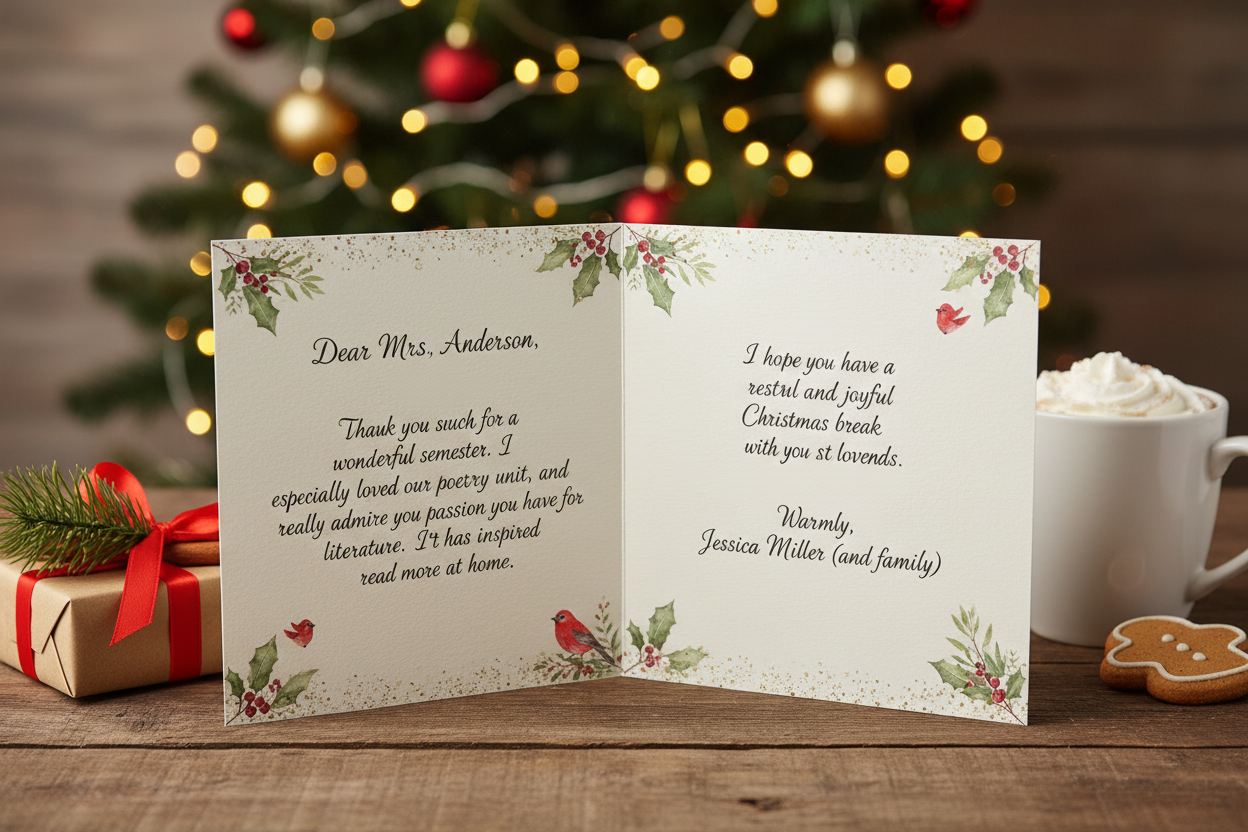 Dear Mrs., Anderson,
Thauk you suuch for a
wonderful semester. I
especially loved our poetry unit, and
really admire you passion you have for
literature. I't has inspired
read more at home.
I hope you have a
restrul and joyful
Christmas break
with you st lovends.
Warmly,
Jessica Miller (and family)